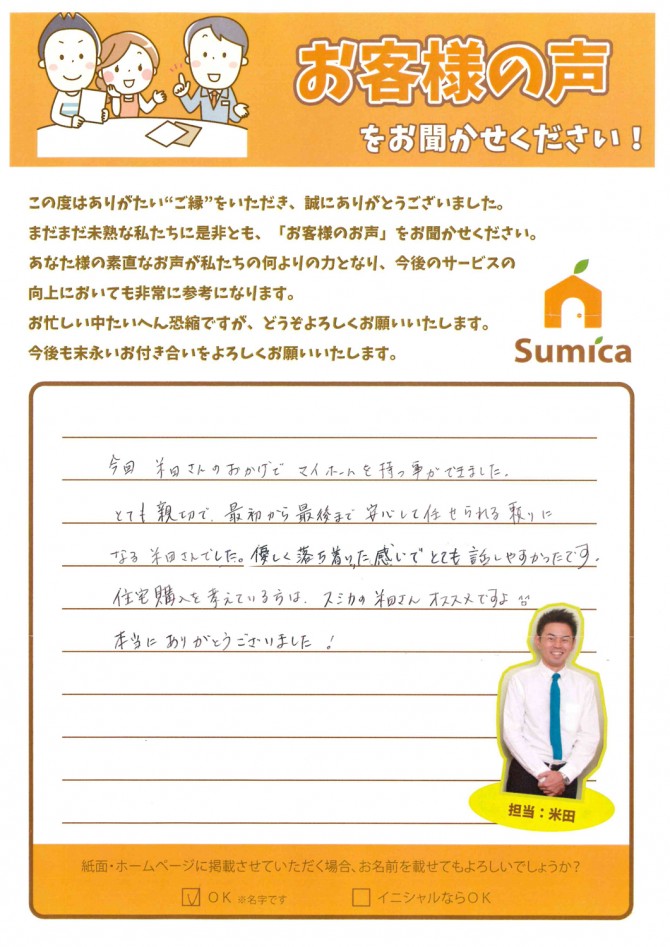 お客様の声
をお聞かせください！
この度はありがたい“ご縁”をいただき、誠にありがとうございました。
まだまだ未熟な私たちに是非とも、「お客様のお声」をお聞かせください。
あなた様の素直なお声が私たちの何よりの力となり、今後のサービスの
向上においても非常に参考になります。
お忙しい中たいへん恐縮ですが、どうぞよろしくお願いいたします。
今後も末永いお付き合いをよろしくお願いいたします。
Sumica
今回 米田さんのおかげで マイホームを持つ事ができました。
とても親切で、最初から最後まで 安心して任せられる頼りに
なる 米田さんでした。優しく落ち着いた感じで とても 話しやすかったです。
住宅購入を考えている方は、スミカの米田さん オススメですよ
本当に ありがとうございました！
担当：米田
紙面・ホームページに掲載させていただく場合、お名前を載せてもよろしいでしょうか？
OK ※名字です イニシャルならOK